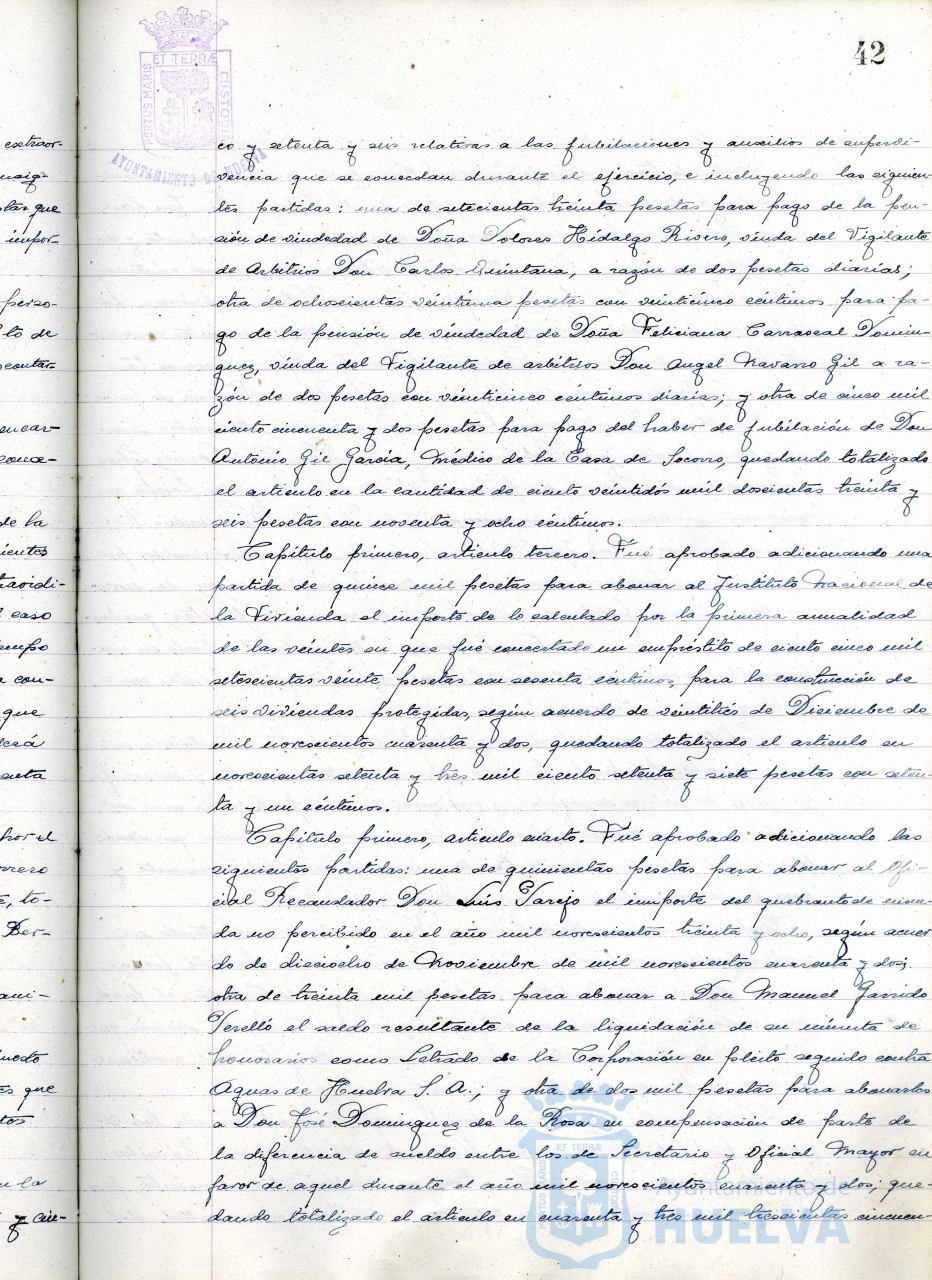 42
PORTUS MARIS ET TERRÆ CUSTODIA
AYUNTAMIENTO DE HUELVA
extraor-
co y setenta y seis relativas a las jubilaciones y auxilios de supervi-
vencia que se concedan durante el ejercicio, e incluyendo las siguien-
tes partidas: una de setecientas treinta pesetas para pago de la pen-
sión de viudedad de Doña Dolores Hidalgo Rivero, viuda del Vigilante
de Arbitrios Don Carlos Quintana, a razón de dos pesetas diarias;
otra de ochocientas veintiuna pesetas con veinticinco céntimos para pa-
go de la pensión de viudedad de Doña Feliciana Carrascal Domin-
guez, viuda del Vigilante de arbitrios Don Angel Navarro Gil a ra-
zón de dos pesetas con veinticinco céntimos diarias; y otra de cinco mil
ciento cincuenta y dos pesetas para pago del haber de jubilación de Don
Antonio Gil García, Médico de la Casa de Socorro, quedando totalizado
el articulo en la cantidad de ciento veintidós mil doscientas treinta y
seis pesetas con noventa y ocho céntimos.
Capítulo primero, articulo tercero. Fué aprobado adicionando una
partida de quince mil pesetas para abonar al Instituto Nacional de
la Vivienda el importe de lo calculado por la primera anualidad
de las veintes en que fué concertado un empréstito de ciento cinco mil
setescientas veinte pesetas con sesenta céntimos, para la construcción de
seis viviendas protegidas, según acuerdo de veintitrés de Diciembre de
mil novescientos cuarenta y dos, quedando totalizado el articulo en
novescientas setenta y tres mil ciento setenta y siete pesetas con seten-
ta y un céntimos.
Capítulo primero, articulo cuarto. Fué aprobado adicionando las
siguientes partidas: una de quinientas pesetas para abonar al Ofi-
cial Recaudador Don Luis Parejo el importe del quebranto de mone-
da no percibido en el año mil novescientos treinta y ocho, según acuer
do de dieciocho de Noviembre de mil novescientos cuarenta y dos;
otra de treinta mil pesetas para abonar a Don Manuel Garrido
Perelló el saldo resultante de la liquidación de su minuta de
honorarios como Letrado de la Corporación en pleito seguido contra
Aguas de Huelva S. A.; y otra de dos mil pesetas para abonarlas
a Don José Dominguez de la Rosa en compensación de parte de
la diferencia de sueldo entre los de Secretario y Oficial Mayor en
favor de aquel durante el año mil novescientos cuarenta y dos; que-
dando totalizado el articulo en cuarenta y tres mil trescientas cincuen-
Ayuntamiento de
HUELVA